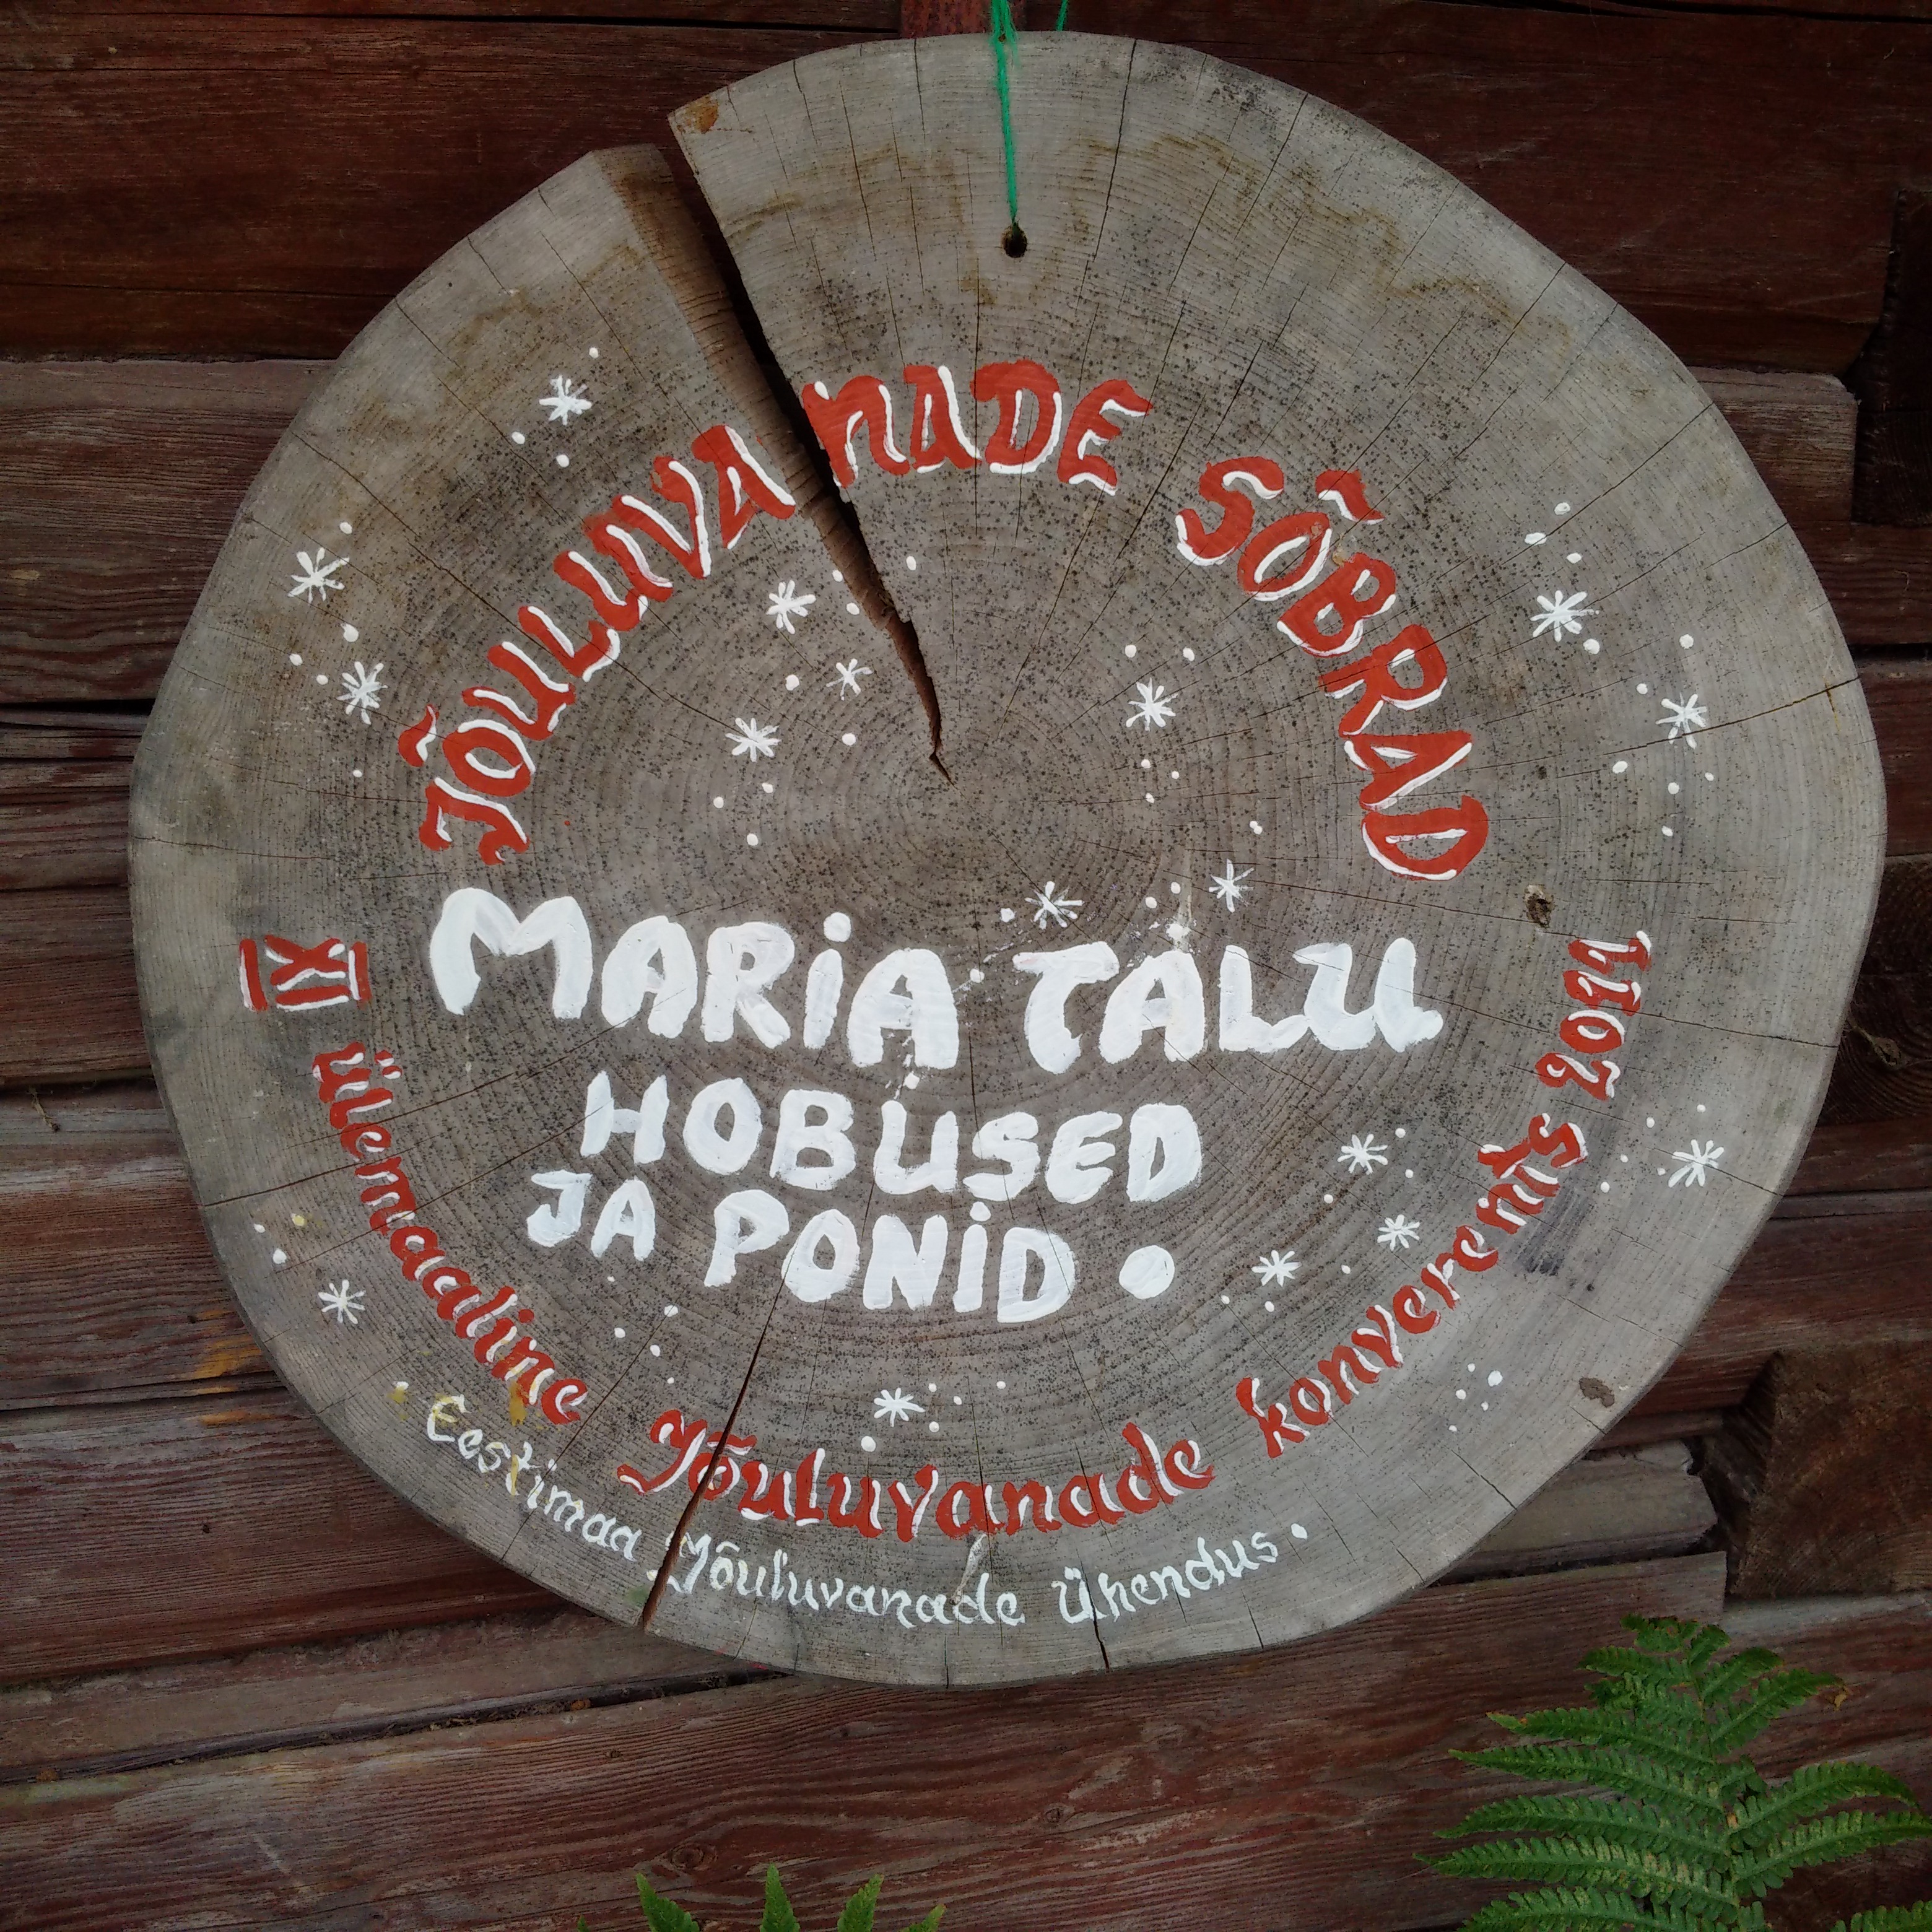 JÕULUVANADE SÕBRAD
MARiA TALU
HOBUSED
JA PONiD •
IX ülemaaline Jõuluvanade konverents 2011
• Eestimaa Jõuluvanade Ühendus •